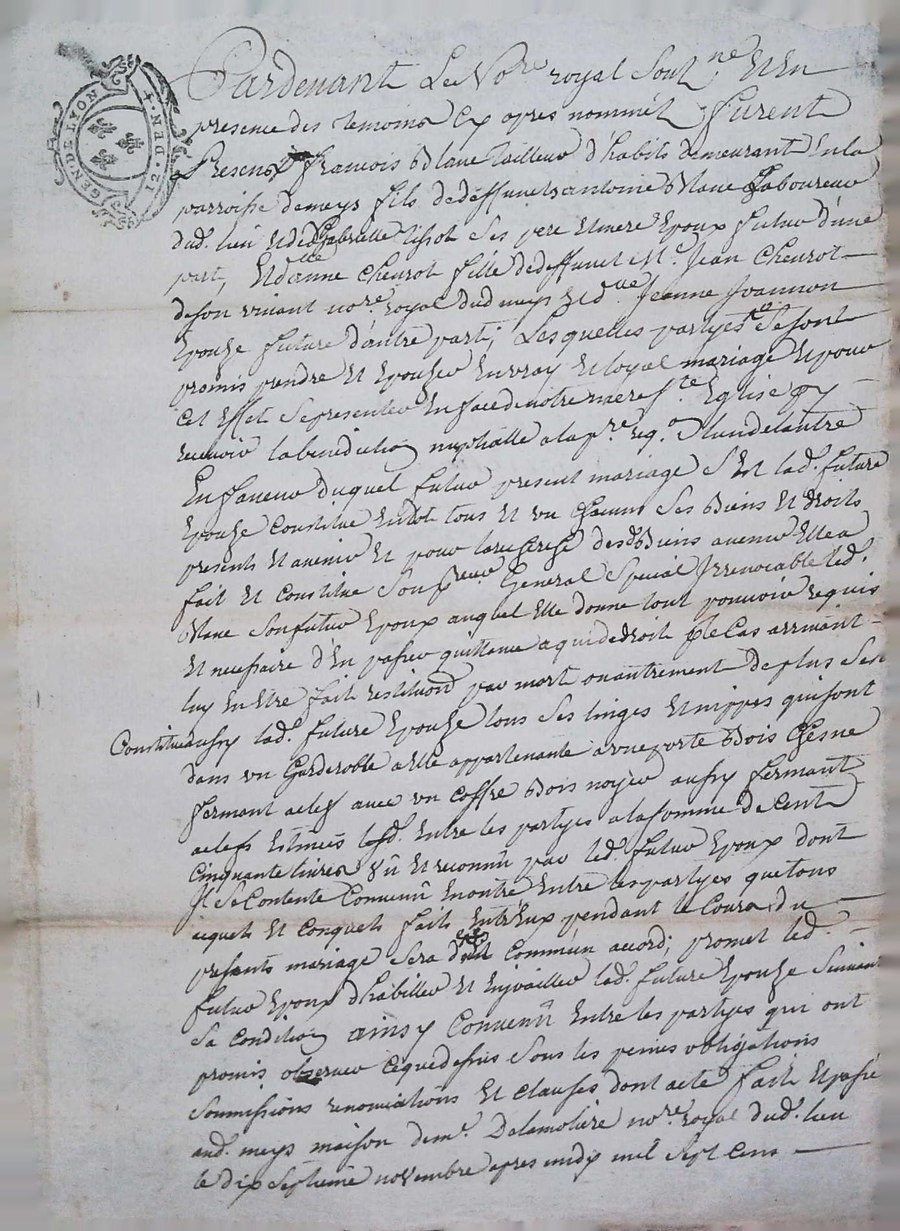 GEN. DE LYON 12. DEN.
Pardevant Le No.re royal Sousg.né Et En
presence des temoins Cy apres nommés furent
Presents francois Blanc tailleur d'habits demeurant En la
parroisse de meys fils de deffuncts antoine Blanc Laboureur
dud. lieu Et de Gabrielle tissot Ses pere Et mere Epoux futur d'une
part, Et d.lle anne Chevrot fille de deffunct M.e Jean Chevrot
de son vivant no.re royal dud meys Et d.lle Jeanne Joannon
Epouse future d'autre part; Lesquelles partyes de Se sont
promis prendre Et Epouser En vray Et loyal mariage Et pour
cet Effet Se presenter En face de notre mere S.te Eglise p.r y
recevoir la benediction nuptialle a la p.re req.on l'un de l'autre
En faveur duquel futur present mariage S'Est lad. future
Epouse Constitué En dot tous Et un Chacun Ses Biens Et droits
presents Et avenir Et pour la recherche desd. Biens avenir Elle a
fait Et Constitué Son procureur General Special Irrevocable led.
Blanc Son futur Epoux auquel Elle donne tout pouvoir requis
Et necessaire d'En passer quittance a qui de droit Et le Cas arrivant
luy En Etre fait restitu͠on par mort ou autrement De plus Sest
Constituée aussy lad. future Epouse tous Ses linges Et nippes qui sont
dans un Garderobbe a Elle appartenante a une porte Bois Chesne
fermant a clef avec un Coffre Bois noyer aussy fermant
a clefs Estimés Entre les partyes a la somme De Cent
Cinquante livres Vû Et reconnû par led. futur Epoux dont
Il Se Contente Convenû En outre Entre les partyes que tous
acquets Et Conquets faits Entr'Eux pendant le Cours du
present mariage Sera d'un Commun accord; promet led.
futur Epoux d'habiller Et Enjoailler lad. future Epouse Suivant
Sa Condition ainsy Convenû Entre les partyes qui ont
promis observer Ce que dessus Sous les peines obligations
Soumissions renonciations Et clauses dont acte fait Et passé
aud. meys maison de m.e Delamoliere no.re royal dud. lieu
le dix Septieme novembre apres midy mil Sept Cens